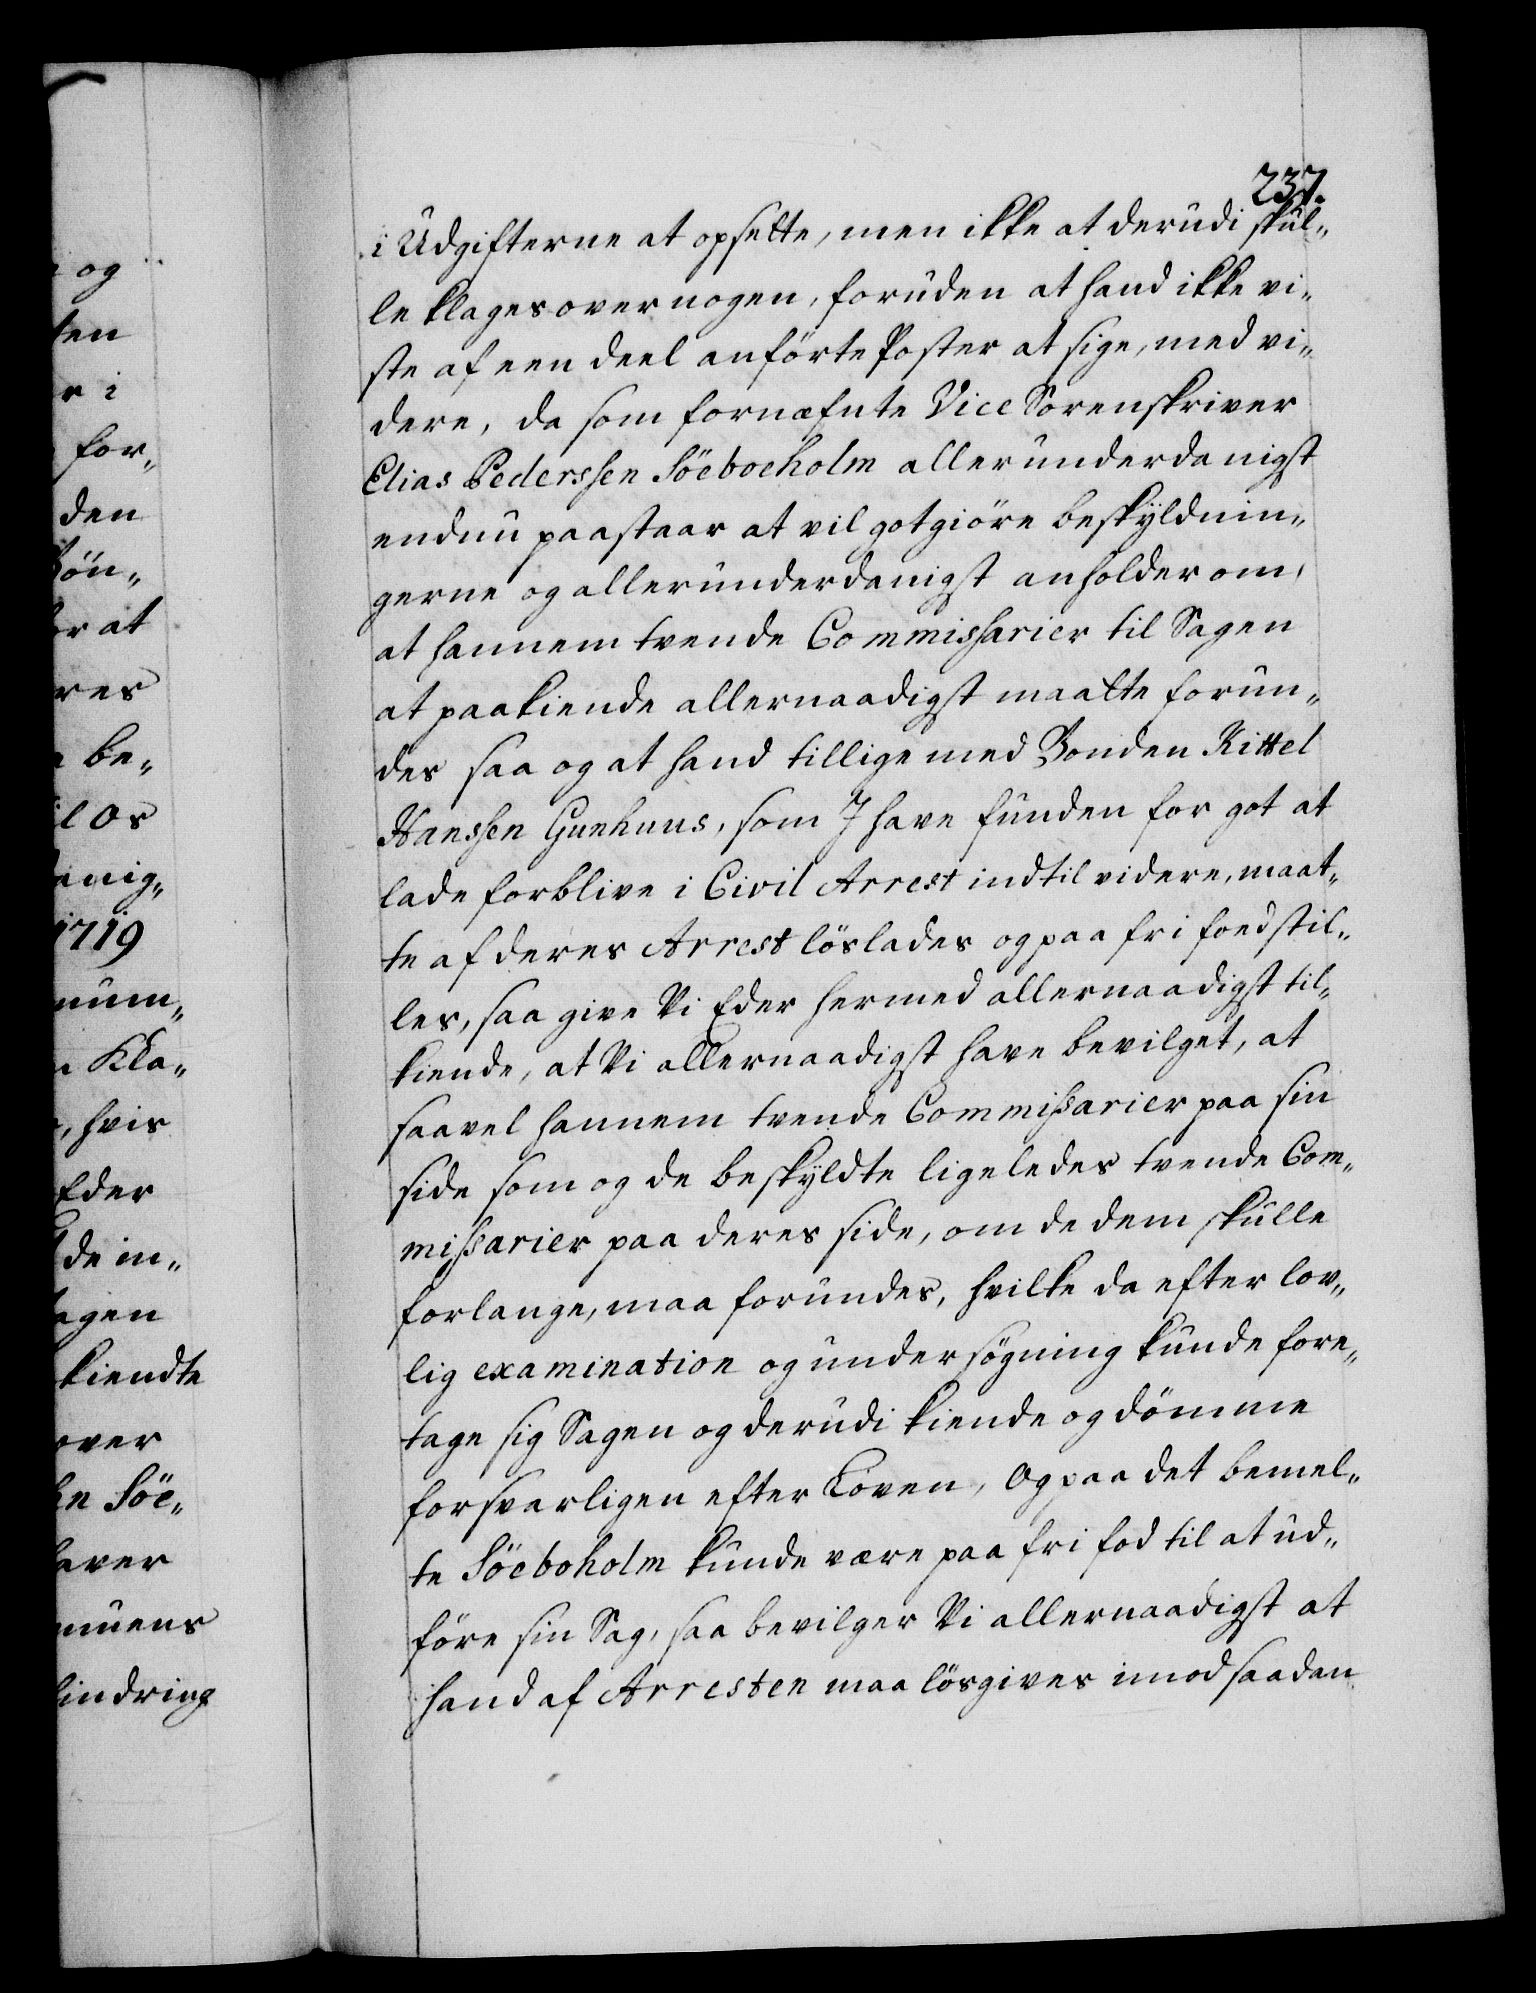 237.
i Udgifterne at opsette, men ikke at derudi skul„
le klages over nogen, foruden at hand ikke vi„
ste af een deel anförte Poster at sige, med vi„
dere, da som fornæfnte Vice Sorenskriver
Elias Pederssen Söeboeholm allerunderdanigst
endnu paastaar at vil gotgiöre beskyldnin„
gerne og allerunderdanigst anholder om,
at hannem tvende Commissarier til Sagen
at paakiende allernaadigst maatte forun„
des saa og at hand tillige med Bonden Kittel
Hanssen Gunhuus, som I have funden for got at
lade forblive i Civil Arrest indtil videre, maat„
te af deres Arrest löslades og paa fri foed stil„
les, saa give Vi Eder hermed allernaadigst til„
kiende, at Vi allernaadigst have bevilget, at
saavel hannem tvende Commissarier paa sin
side som og de beskyldte ligeledes tvende Com„
missarier paa deres side, om de dem skulle
forlange, maa forundes, hvilke da efter lov„
lig examination og undersögning kunde fore„
tage sig Sagen og derudi kiende og dömme
forsvarligen efter Loven, Og paa det bemel„
te Söeboholm kunde være paa fri fod til at ud„
före sin Sag, saa bevilger Vi allernaadigst at
hand af Arresten maa lösgives imod saadan
og
for„
den
or at
be„
1719
Kla„
, hvis
Eder
de in„
kiendte
over
Söe„